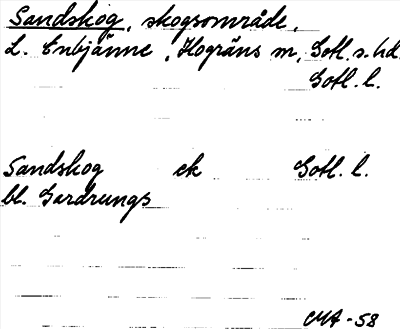 Sandskog, skogsområde,
L. Enbjänne, Hogräns m, Gotl. s. hd.
Gotl. l.
Sandskog ek Gotl. l.
bl. Gardrungs
CMA - 58